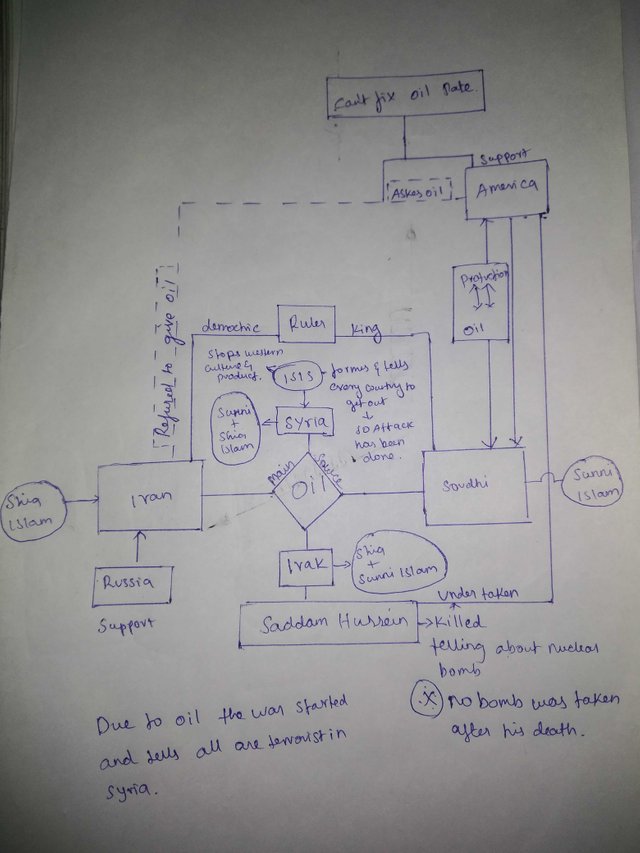 Can't fix oil Rate.
Support
Askes oil
America
Refused to give oil
Protuction
oil
democtic
Ruler
king
Stops western
culture &
product.
ISIS
formes & tells
every country to
get out
SO Attack
has been
done.
Sunni
+
Shia
Islam
Syria
Main
Source
Oil
Shia
Islam
Iran
Soudhi
Sunni
Islam
Irak
Shia
+
Sunni Islam
Russia
Support
Saddam Hussein
under taken
Killed
telling about nuclear
bomb
no bomb was taken
after his death.
Due to oil the was started
and tells all are terrorist in
Syria.